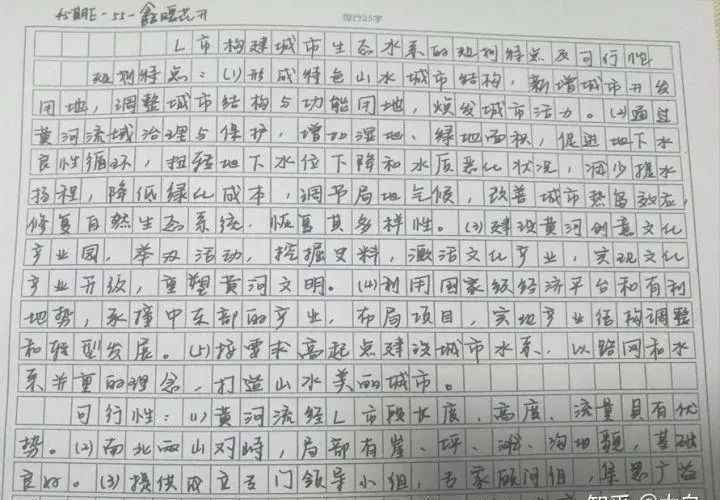 45期E-55-鑫晖花开
每行25字
L市构建城市生态水系的规划特点及可行性
规划特点：(1)形成特色山水城市结构，新增城市开发
用地，调整城市结构与功能用地，焕发城市活力。(2)通过
黄河流域治理与保护，增加湿地、绿地面积，促进地下水
良性循环，扭转地下水位下降和水质恶化状况，减少提水
扬程，降低绿化成本，调节局地气候，改善城市热岛效应，
修复自然生态系统，恢复其多样性。(3)建设黄河创意文化
产业园，举办活动，挖掘史料，激活文化产业，实现文化
产业升级，重塑黄河文明。(4)利用国家级经济平台和有利
地势，承接中东部的产业，布局项目，实现产业结构调整
和转型发展。(5)按需求高起点建设城市水系，以路网和水
系并重的理念，打造山水美丽城市。
可行性：(1)黄河流经L市段长度、高度、流量具有优
势。(2)南北两山对峙，局部有崖、坪、滩、沟地貌，基础
良好。(3)提供成立专门领导小组，专家顾问组，集思广益
知乎